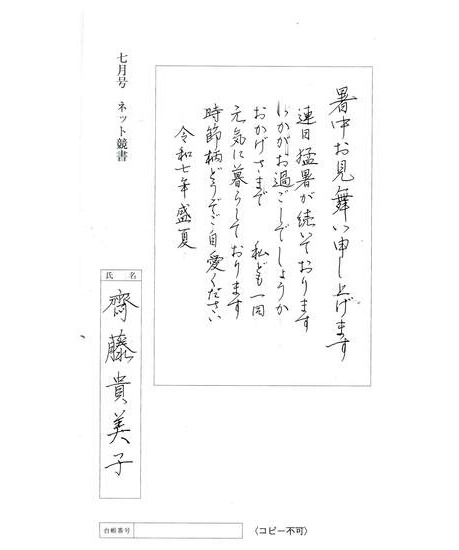 暑中お見舞い申し上げます
連日猛暑が続いております
いかがお過ごしでしょうか
おかげさまで 私ども一同
元気に暮らしております
時節柄どうぞご自愛ください
令和七年盛夏
七月号 ネット競書
氏名
齋藤貴美子
台帳番号
(コピー不可)